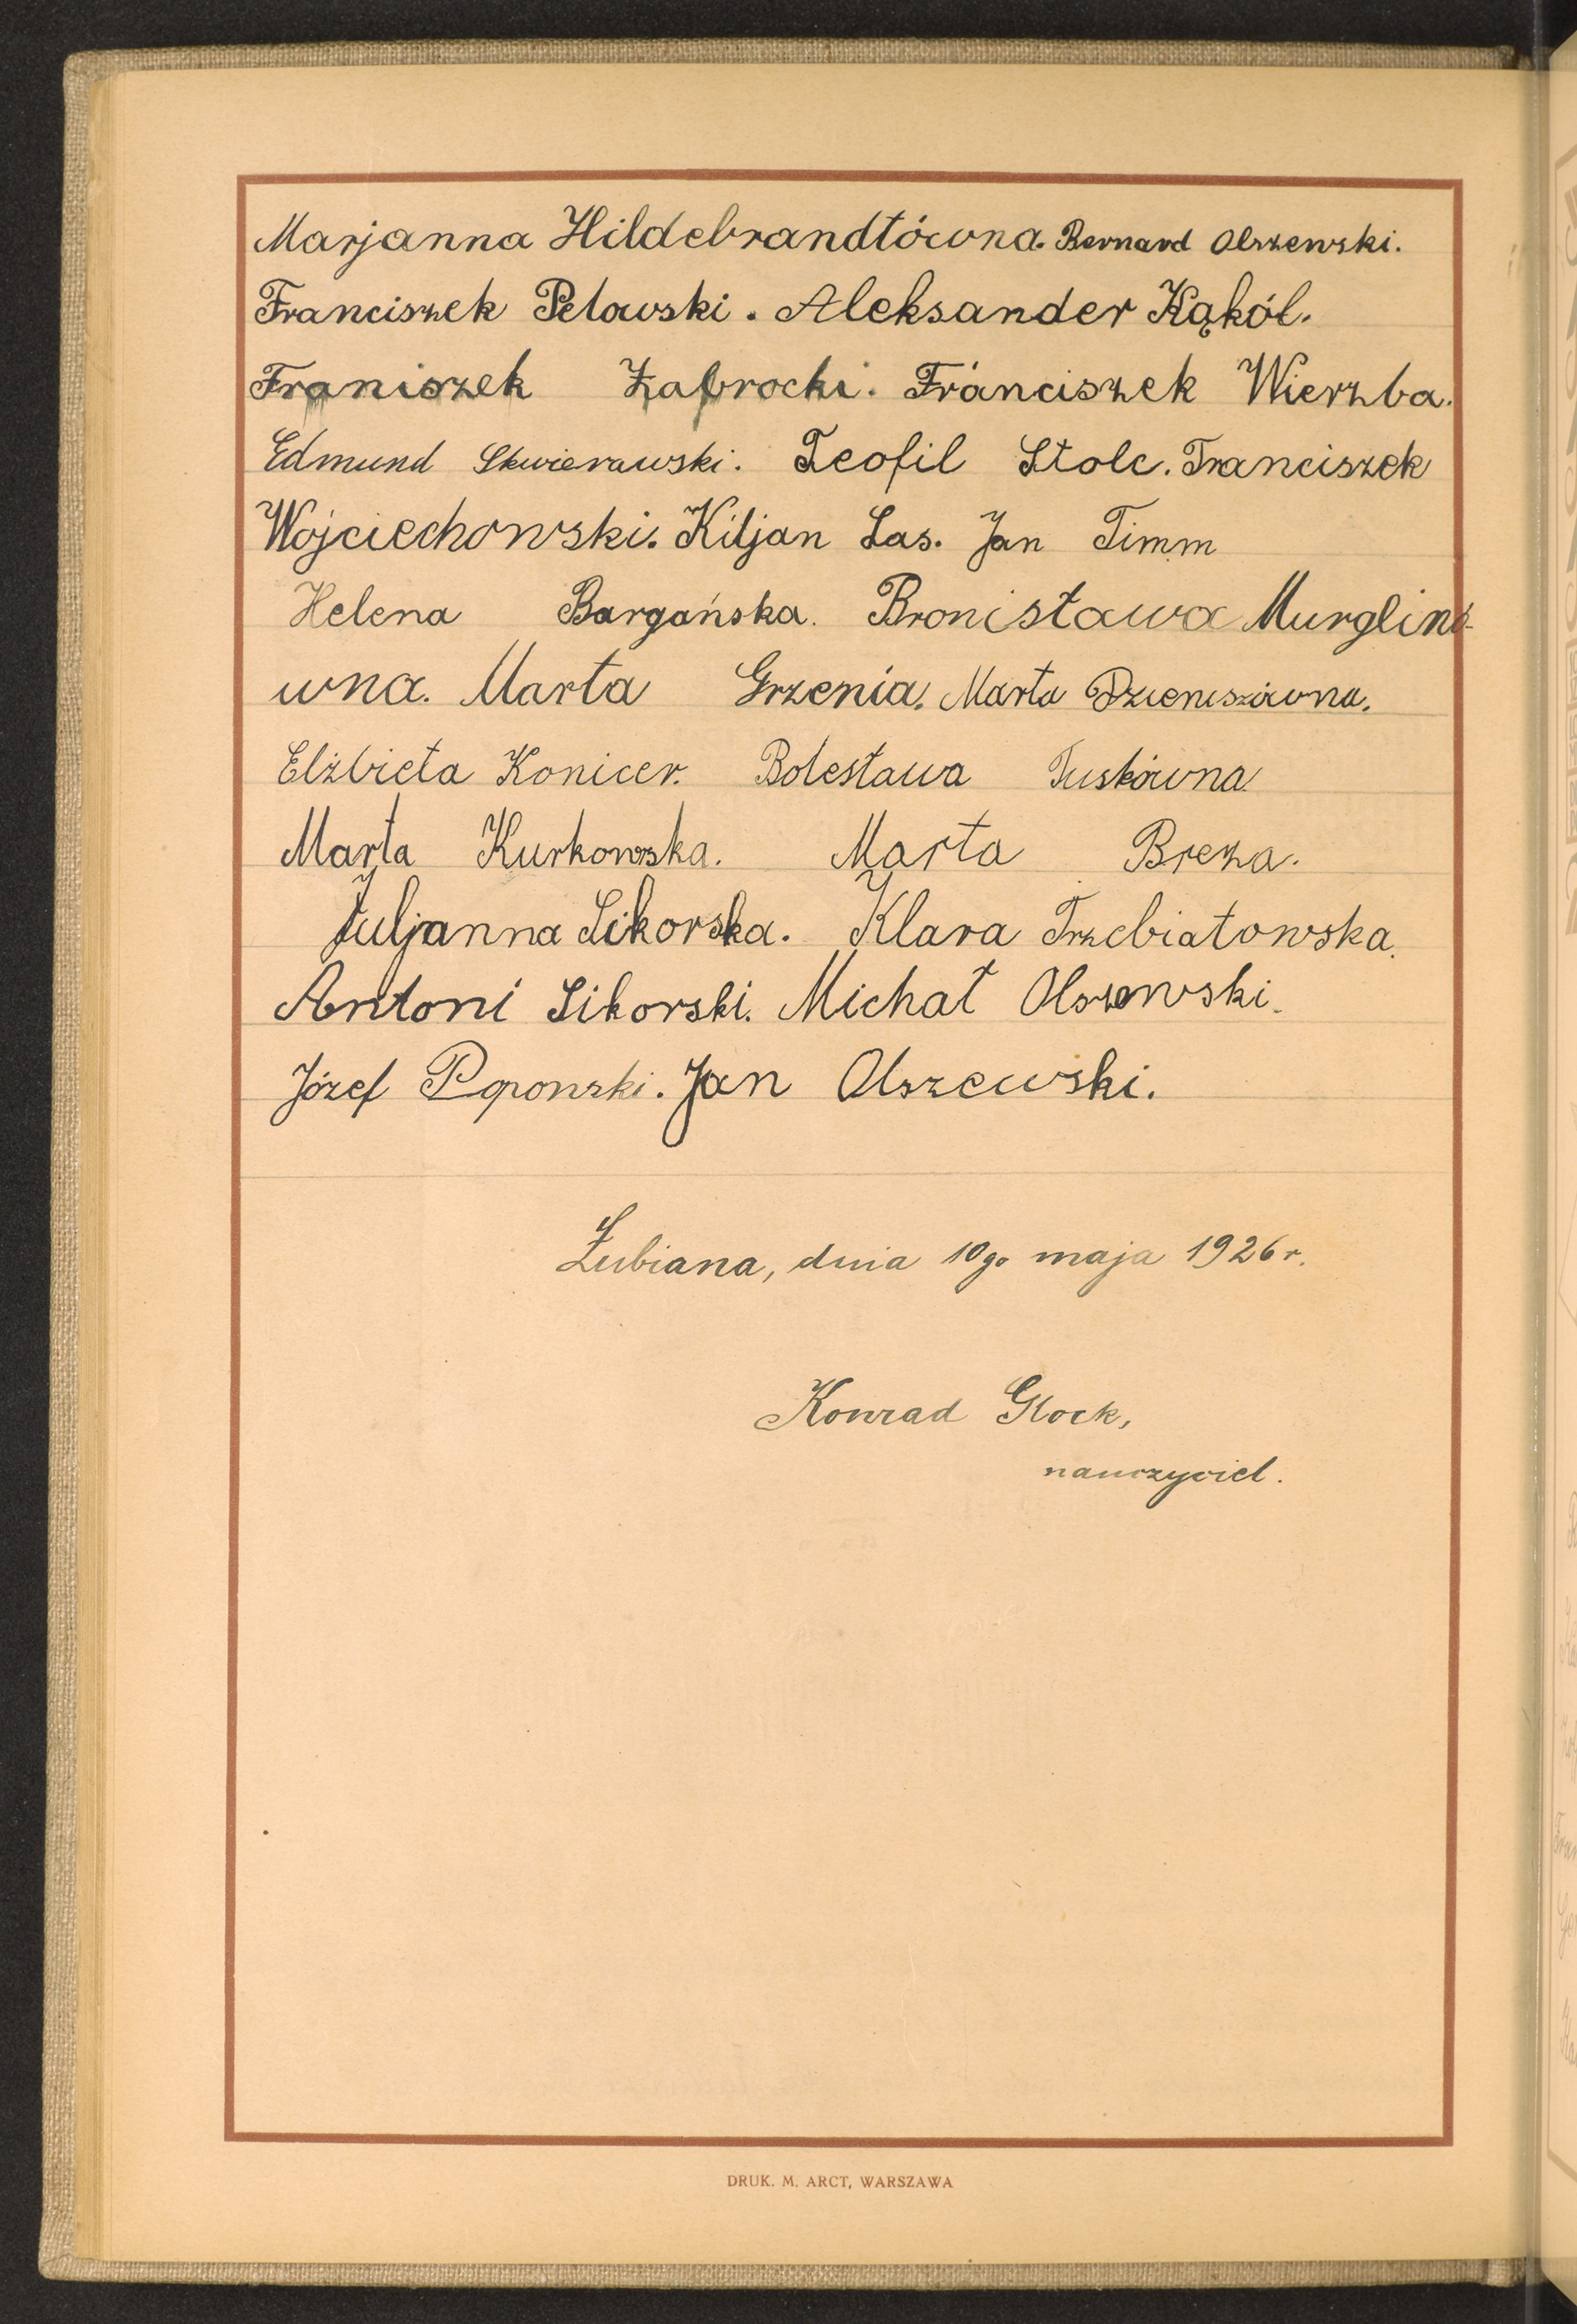 Marjanna Hildebrandtówna. Bernard Olszewski.
Franciszek Pelowski. Aleksander Kąkól.
Franiszek Zabrocki. Franciszek Wierzba.
Edmund Skwierawski. Teofil Stolc. Franciszek
Wojciechowski. Kiljan Las. Jan Timm
Helena Bargańska. Bronisława Murglinó-
wna. Marta Grzenia. Marta Dzieniszówna.
Elżbieta Konicer. Bolesława Tuskówna
Marta Kurkowska. Marta Breza.
Juljanna Sikorska. Klara Trzebiatowska.
Antoni Sikorski. Michał Olszewski.
Józef Popowski. Jan Olszewski.
Łubiana, dnia 10go maja 1926 r.
Konrad Glock,
nauczyciel.
DRUK. M. ARCT, WARSZAWA